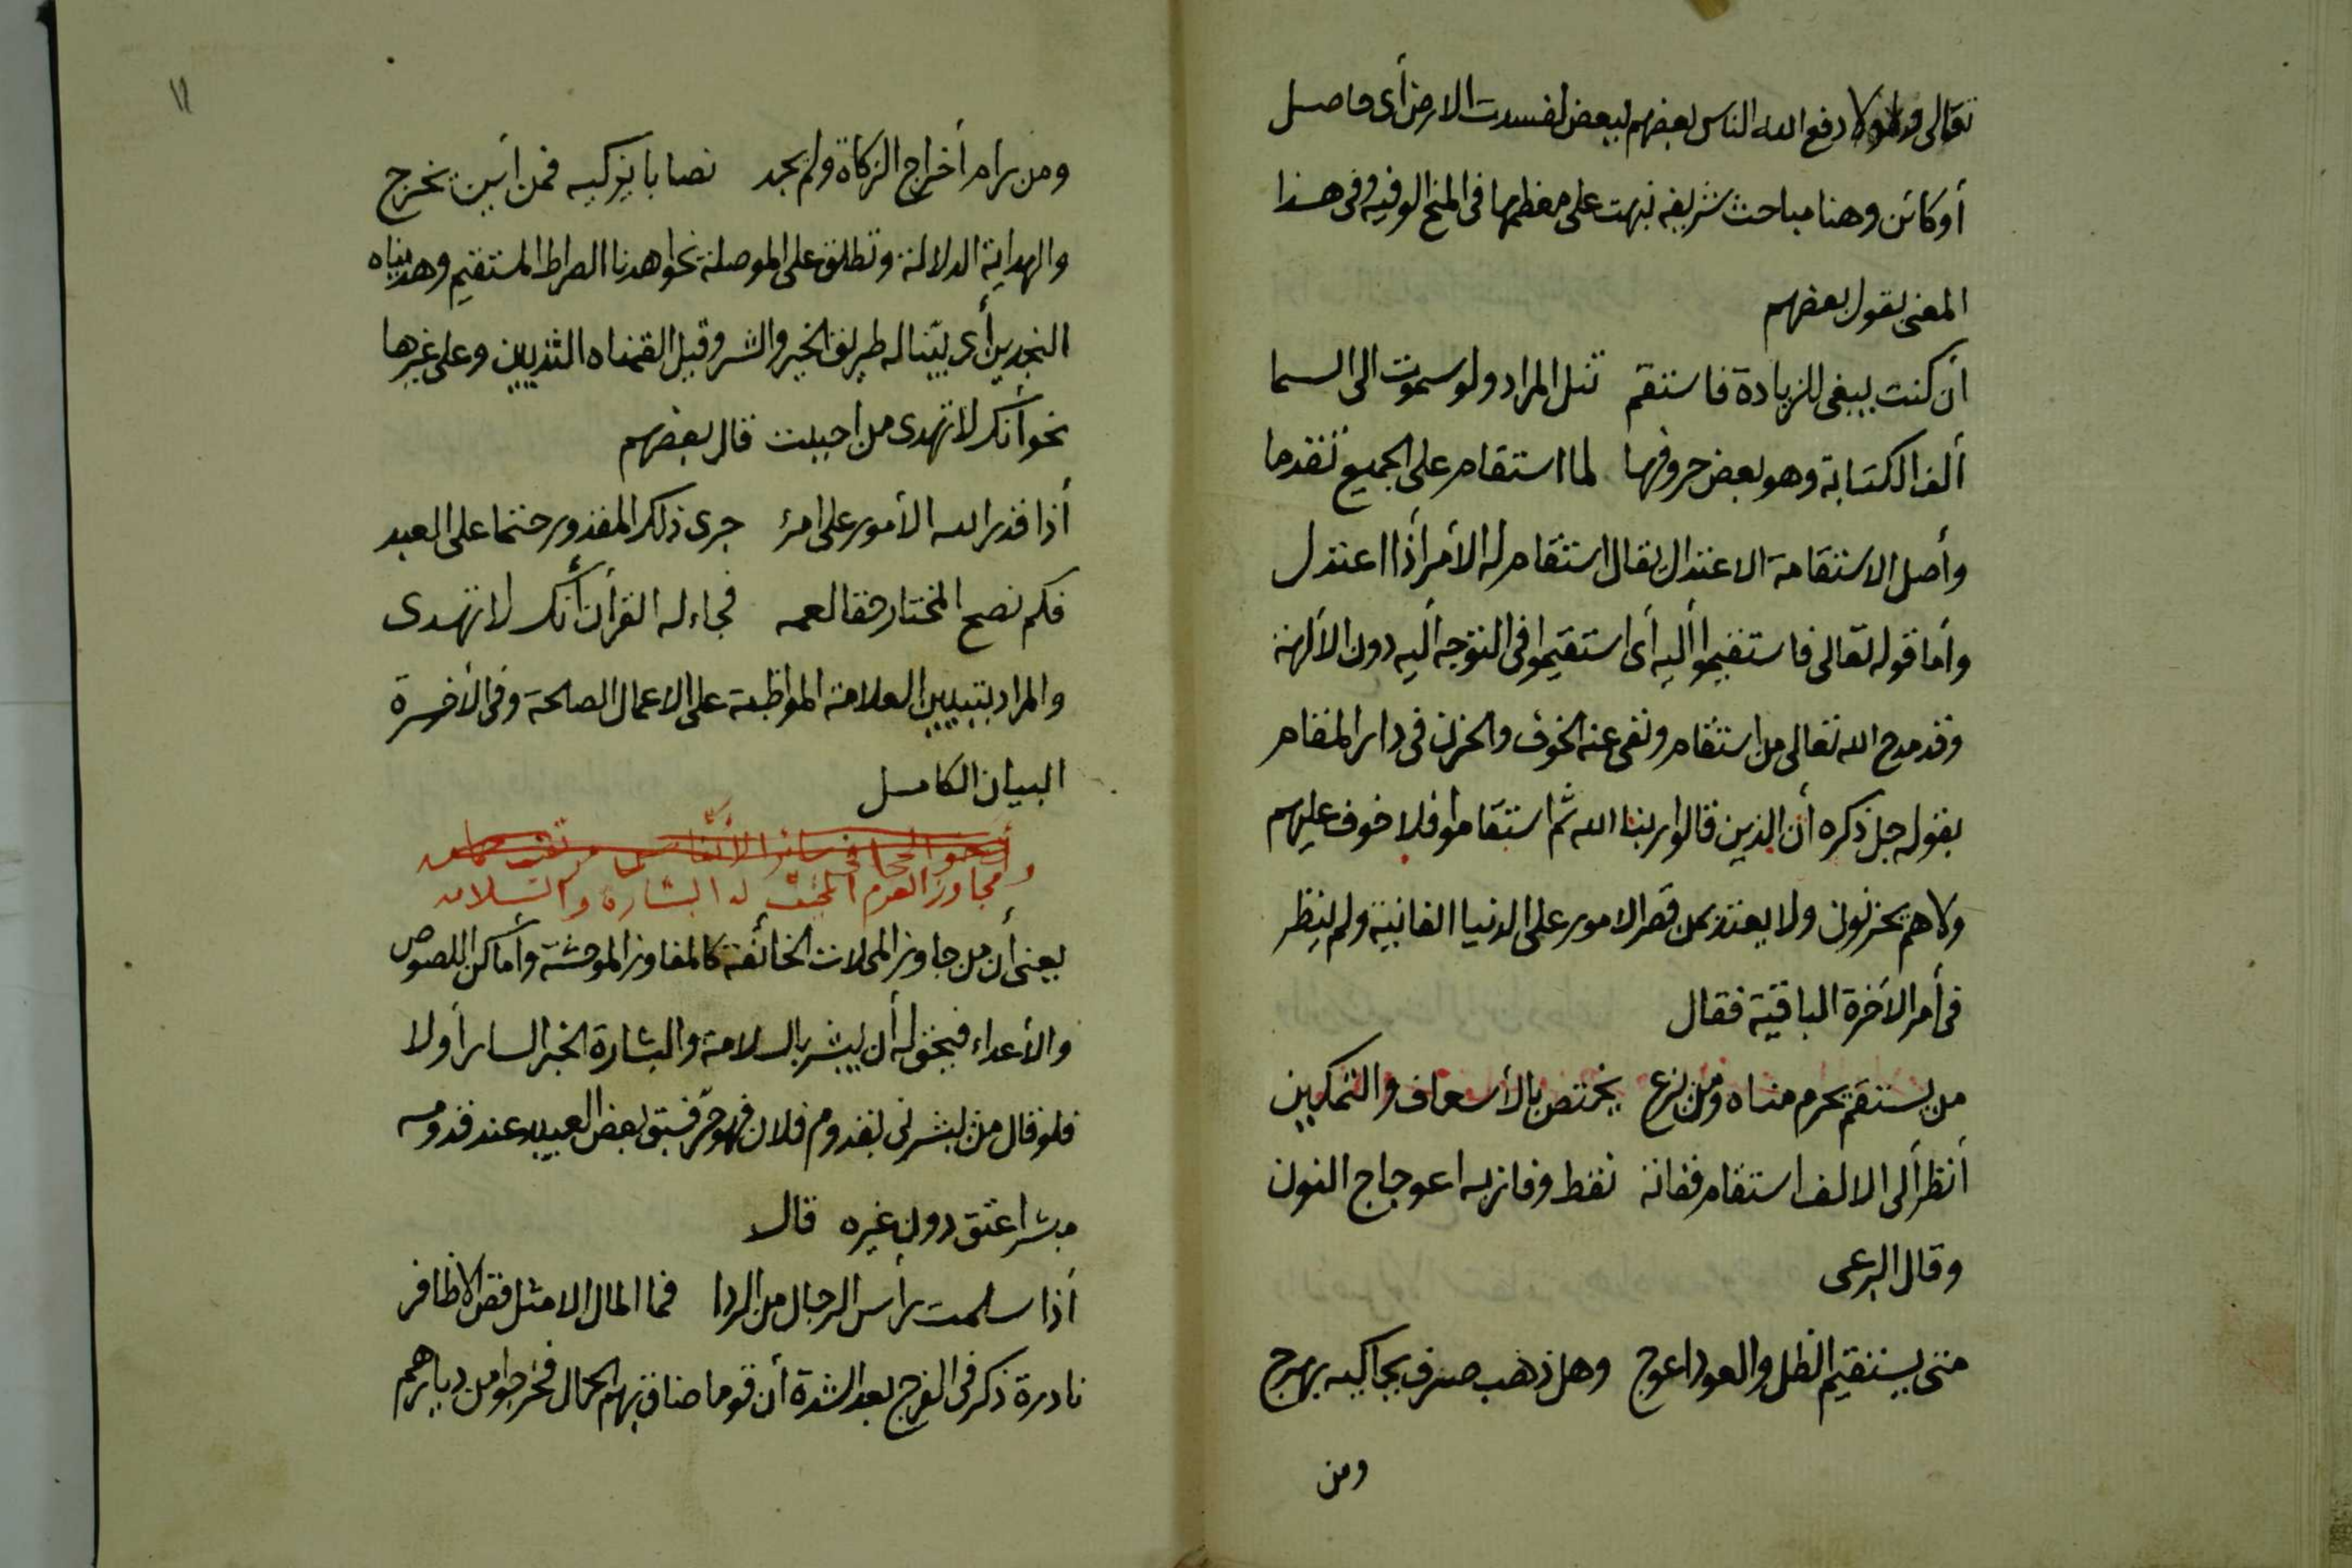 تعالى ولولا دفع الله الناس بعضهم لبعض لفسدت الارض أى حاصل
أو كائن وهنا مباحث شريفه نبهت على معظمها فى المنح الوفيه وفى هذا
المعنى يقول بعضهم
أن كنت يبغى للزيادة فاستقم تنل المراد ولو سموت الى السما
ألف الكتابة وهو بعض حروفها لما استقام على الجميع تقدما
وأصل الاستقامة الاعتدال يقال استقام له الأمر أذا اعتدل
وأما قوله تعالى فاستقيموا أليه أى استقيموا فى التوجه أليه دون الألهة
وقد مدح الله تعالى من استقام ونفى عنه الخوف والحزن فى دار المقام
بقوله جل ذكره أن الذين قالوا ربنا الله ثم استقاموا فلا خوف عليهم
ولا هم يحزنون ولا يعتد بمن قصر الامور على الدنيا الفانية ولم ينظر
فى أمر الأخرة الباقية فقال
من يستقم يحرم مناه ومن يزع يختص بالأسعاف والتمكين
أنظر ألى الالف استقام ففاته نقط وفاز به اعوجاج النون
وقال البرعى
متى يستقيم الظل والعود اعوج وهل ذهب صرف يحاكيه بهرج
ومن
١١
ومن رام أخراج الزكاة ولم يجد نصابا يزكيه فمن أين يخرج
والهداية الدلالة وتطلق على الموصلة نحو اهدنا الصراط المستقيم وهديناه
النجدين أى بيّنا له طريق الخير والشر وقيل القمناه الثديين وعلى غيرها
نحو أنك لا تهدى من احببت قال بعضهم
أذا قدر الله الأمور على امرئ جرى ذلك المقدور حتما على العبد
فكم نصح المختار حقا لعمه فجاء له القرأن أنك لا تهدى
والمراد بتبيين العلامة المواظبة على الاعمال الصالحة وفى الأخرة
البيان الكامل
ومجاوز القوم المخيف له البشارة والسلامه
يعنى أن من جاوز المحلات الخائفة كالمفاوز الموحشة وأماكن اللصوص
والأعداء فيحق له أن يبشر بالسلامة والبشارة الخبر السار أولا
فلو قال من بشرنى بقدوم فلان فهو حر فسبق بعض العبيد عند قدومه
مبشرا عتق دون غيره قال
أذا سلمت رأس الرجال من الردا فما المال الا مثل قص الاظافر
نادرة ذكر فى الفرج بعد الشدة أن قوما ضاق بهم الحال فخرجوا من ديارهم